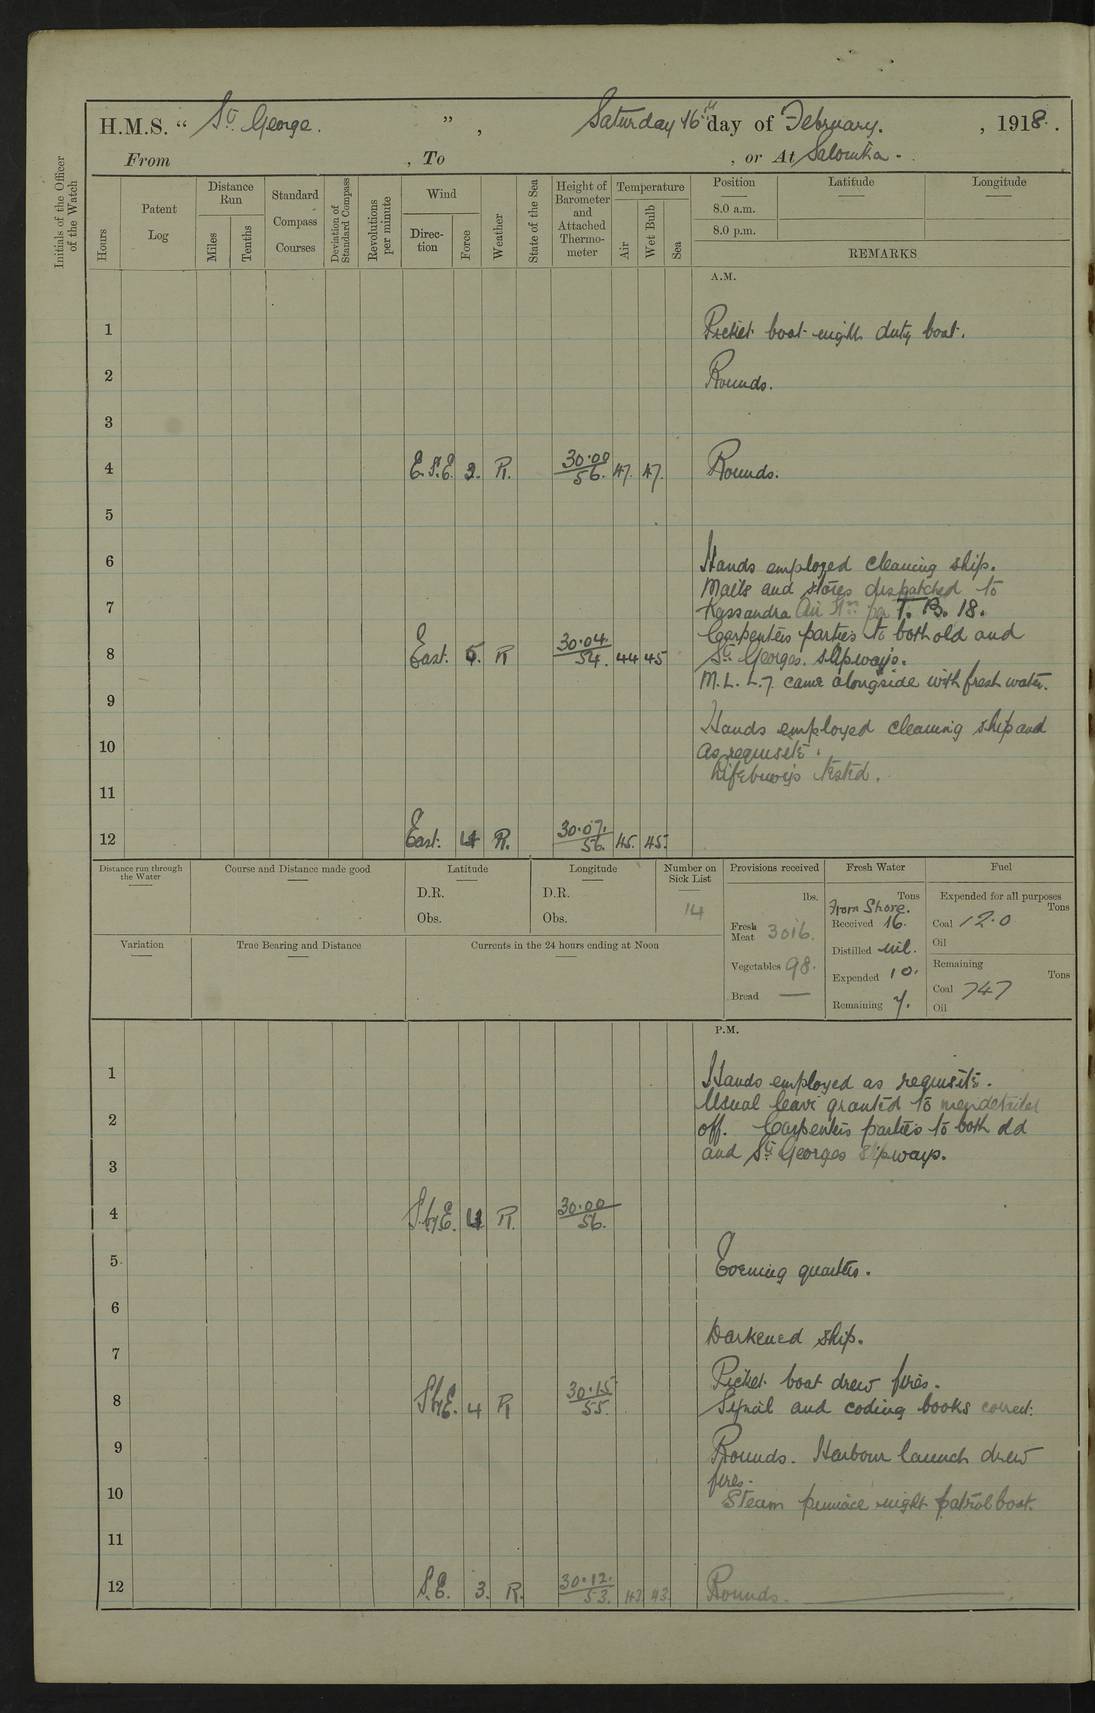 H.M.S. “ St. George. ”, Saturday 16th day of February. , 1918.
From , To , or At Salonika.
Initials of the Officer of the Watch
Hours
Patent Log
Distance Run
Miles
Tenths
Standard Compass Courses
Deviation of Standard Compass
Revolutions per minute
Wind
Direction
Force
Weather
State of the Sea
Height of Barometer and Attached Thermometer
Temperature
Air
Wet Bulb
Sea
Position Latitude Longitude
8.0 a.m.
8.0 p.m.
REMARKS
A.M.
1 Picket boat night duty boat.
2 Rounds.
3
4 E.S.E. 2. R. 30.00/56. 47. 47. Rounds.
5
6 Hands employed cleaning ship.
Mails and stores dispatched to
7 Kassandra Air Stn per T.B. 18.
Carpenters parties to both old and
8 East. 5. R 30.04./54. 44 45 St. Georges. slipways.
M.L. L.7 came alongside with fresh water.
9
Hands employed cleaning ship and
10 as requisite.
Lifebuoys tested.
11
12 East. 4 R. 30.07./56. 45. 45.
Distance run through the Water
Course and Distance made good
Latitude
D.R.
Obs.
Longitude
D.R.
Obs.
Number on Sick List
14
Provisions received
lbs.
Fresh Meat 3016.
Vegetables 98.
Bread —
Fresh Water
Tons
From Shore.
Received 16.
Distilled nil.
Expended 10.
Remaining 7.
Fuel
Expended for all purposes
Tons
Coal 12.0
Oil
Remaining
Tons
Coal 747
Oil
Variation
True Bearing and Distance
Currents in the 24 hours ending at Noon
P.M.
1 Hands employed as requisite.
Usual leave granted to men detailed
2 off. Carpenters parties to both old
3 and St. Georges slipways.
4 S.byE. 4 R. 30.00/56.
5 Evening quarters.
6
Darkened ship.
7
Picket boat drew fires.
8 SbyE. 4 R 30.15/55. Signal and coding books correct.
9 Rounds. Harbour launch drew
fires.
10 Steam pinnace night patrol boat.
11
12 S.E. 3. R. 30.12./53. 43 43. Rounds.